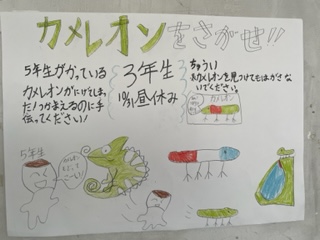 カメレオンをさがせ!!
5年生がかっている
カメレオンがにげてしまっ
た!つかまえるのに手
伝ってください!
3年生
10/31昼休み
ちゅうい
カメレオンを見つけてもはがさな
いでください。
カメレオン
5年生
カメレオン